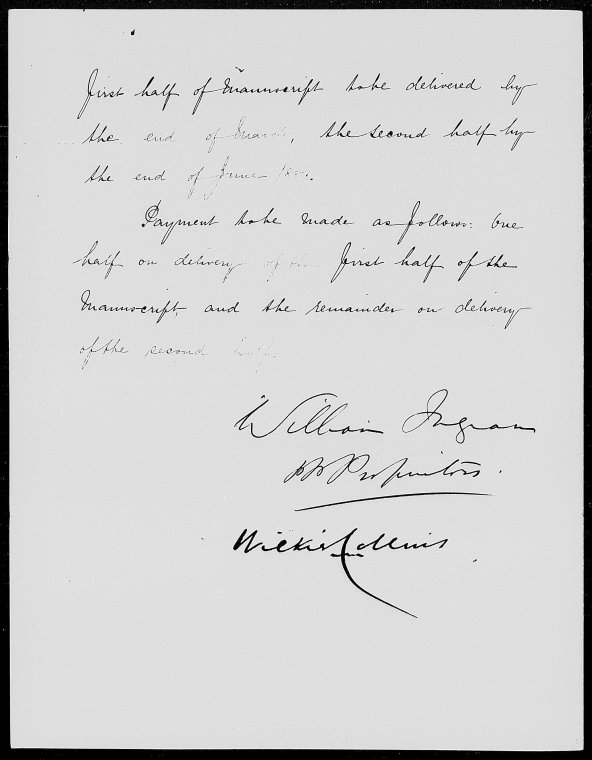 First half of Manuscript to be delivered by
the end of March, the second half by
the end of June
Payment to be made as follows: One
half on delivery of the first half of the
Manuscript, and the remainder on delivery
of the second half.
William Ingram
pp Proprietors.
Wilkie Collins